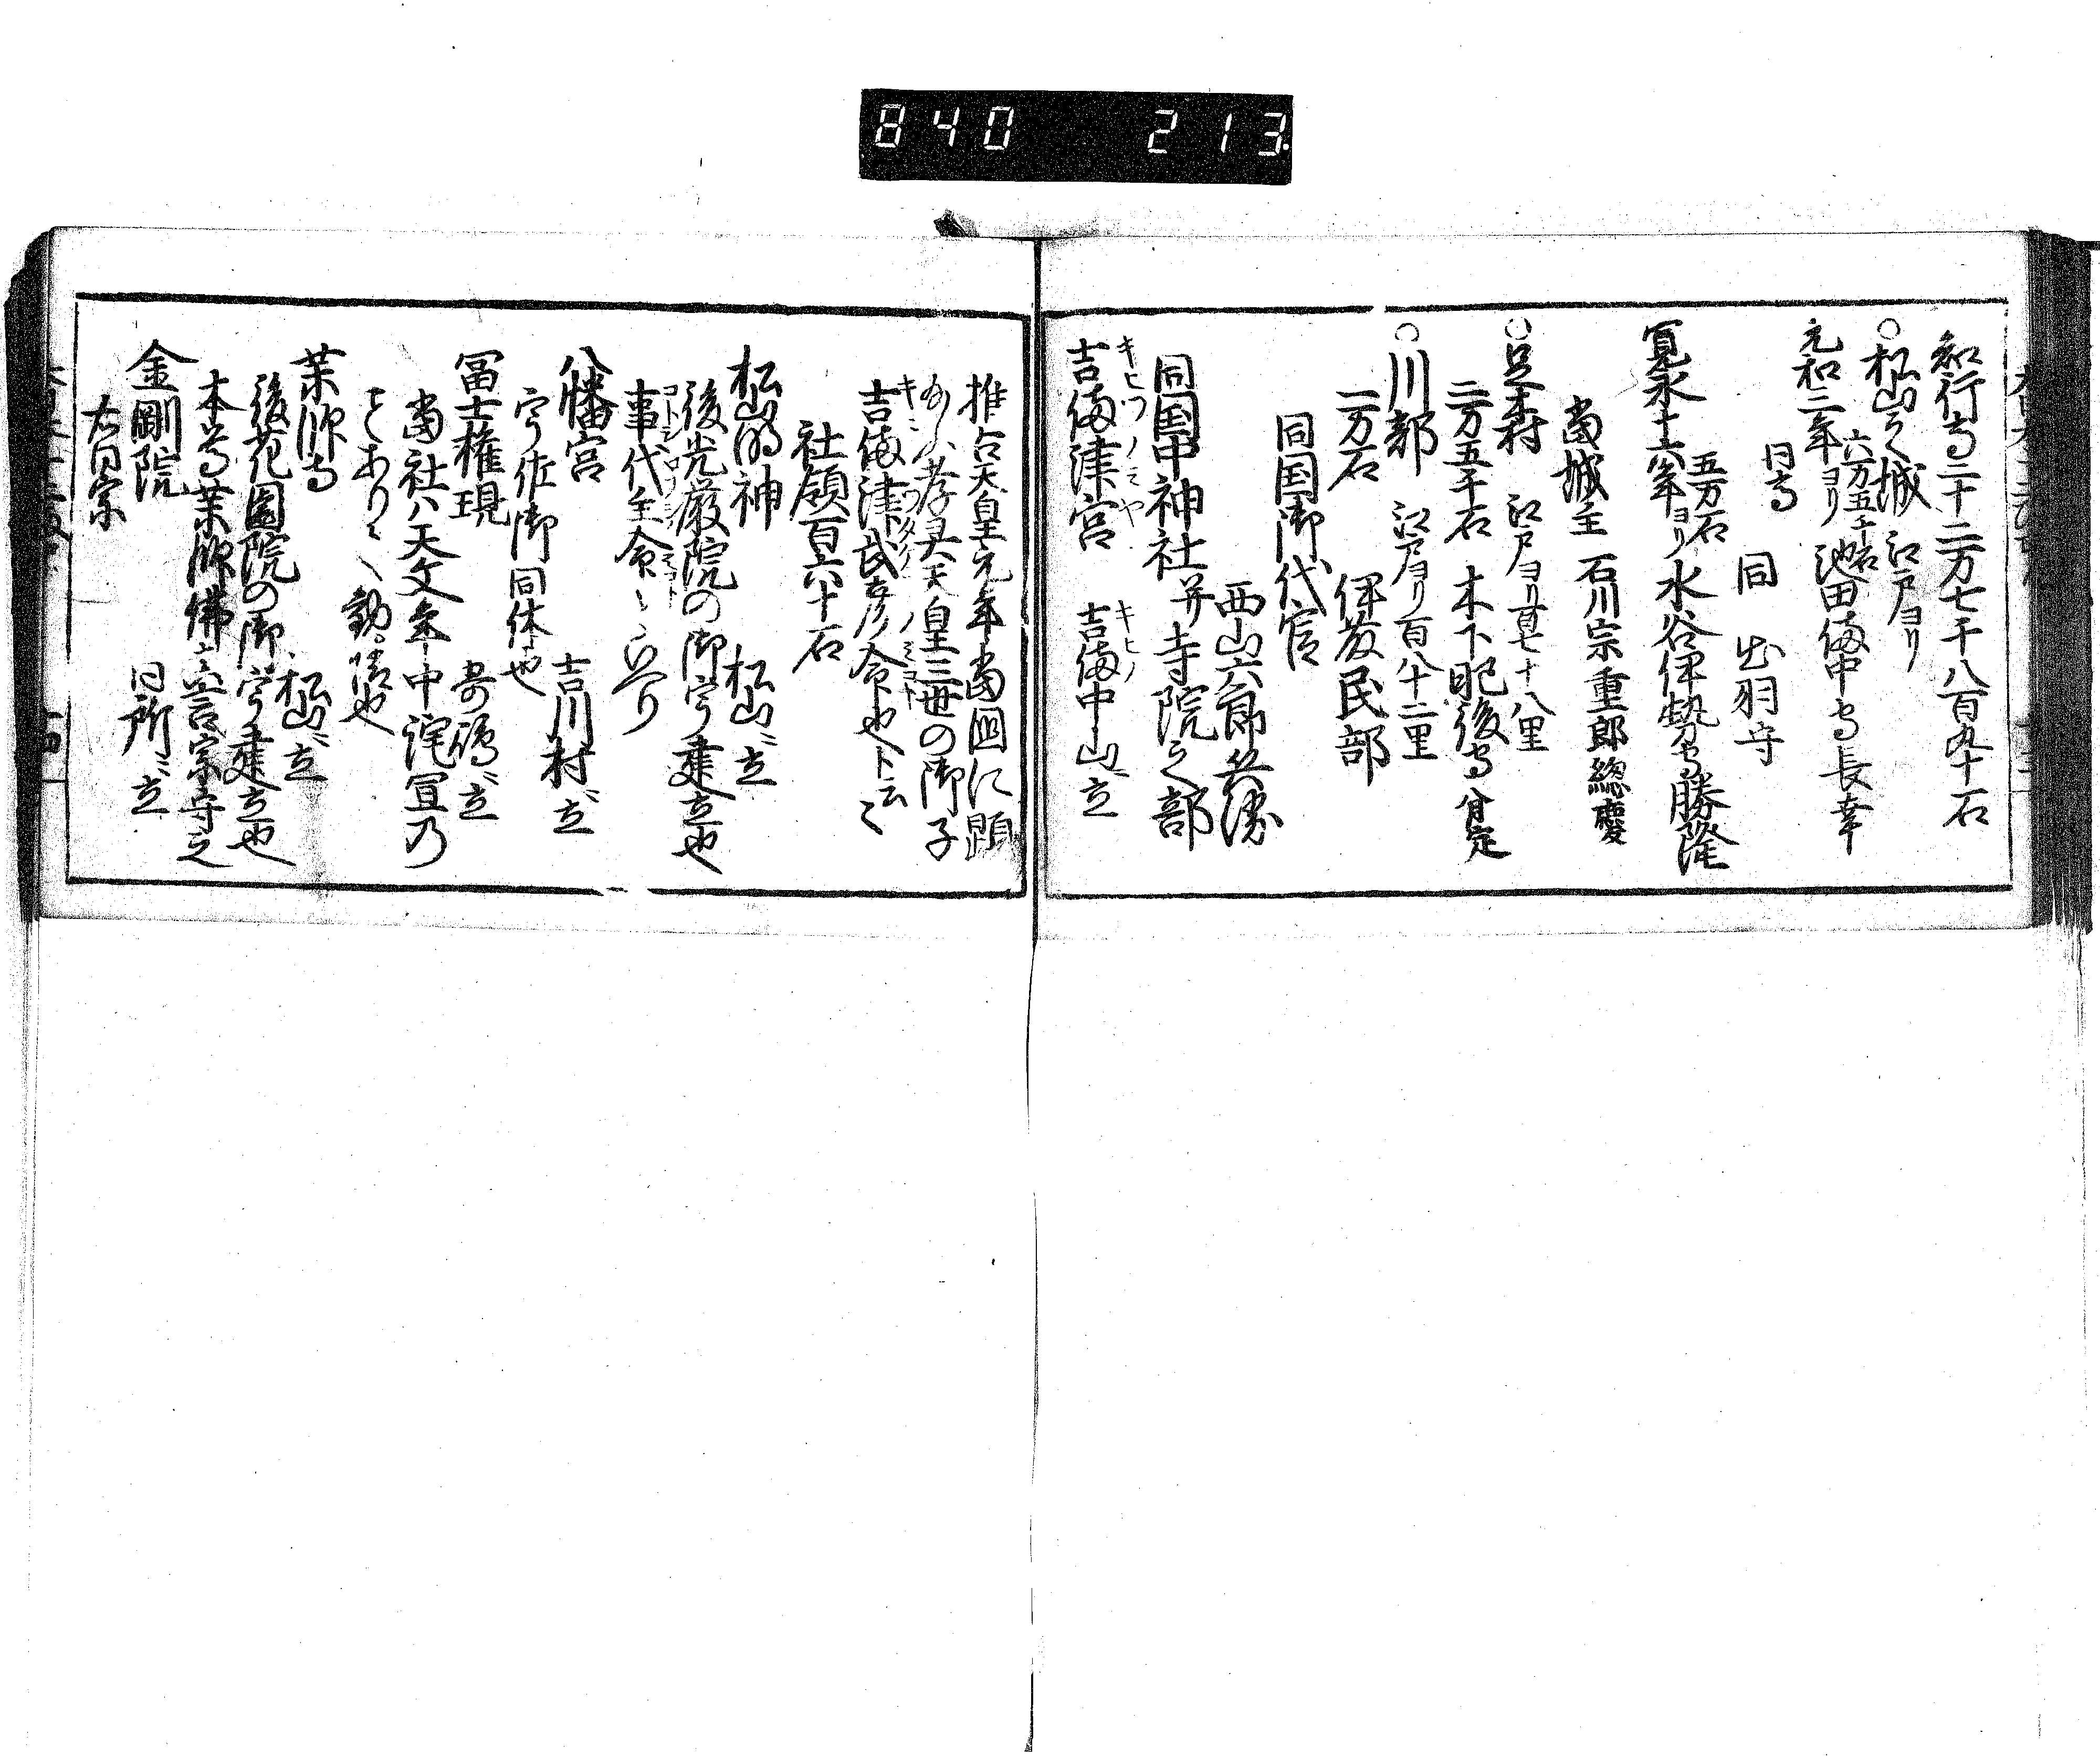 840 213
知行高二十二万七千八百九十石
○松山之城 江戸ヨリ
六万五千石
元和二年ヨリ 池田備中守長幸
同高 同 出羽守
五万石
寛永十六年ヨリ 水谷伊勢守勝隆
當城主 石川宗重郎總慶
○足森 江戸ヨリ百七十八里
二万五千石 木下肥後守
○川部 江戸ヨリ百八十二里
一万石 伊東民部
同国御代官
西山六郎兵衛
同国中神社并寺院之部
キヒツノミヤ キヒノ
吉備津宮 吉備中山ニ立
推古天皇元年當国に顕
孝灵天皇三世の御子
吉備津武彦命也ト云々
社領百六十石
松嶋神 松山ニ立
後光厳院の御宇建立也
コトシロヌシノミコト
事代主命
八幡宮 吉川村ニ立
宇佐御同体也
冨士権現 ニ立
當社ハ天文年中詫宣乃
ことありて勧請也
薬師寺 松山ニ立
後花園院の御宇建立也
本尊薬師佛真言宗守之
金剛院 同所ニ立
右同宗